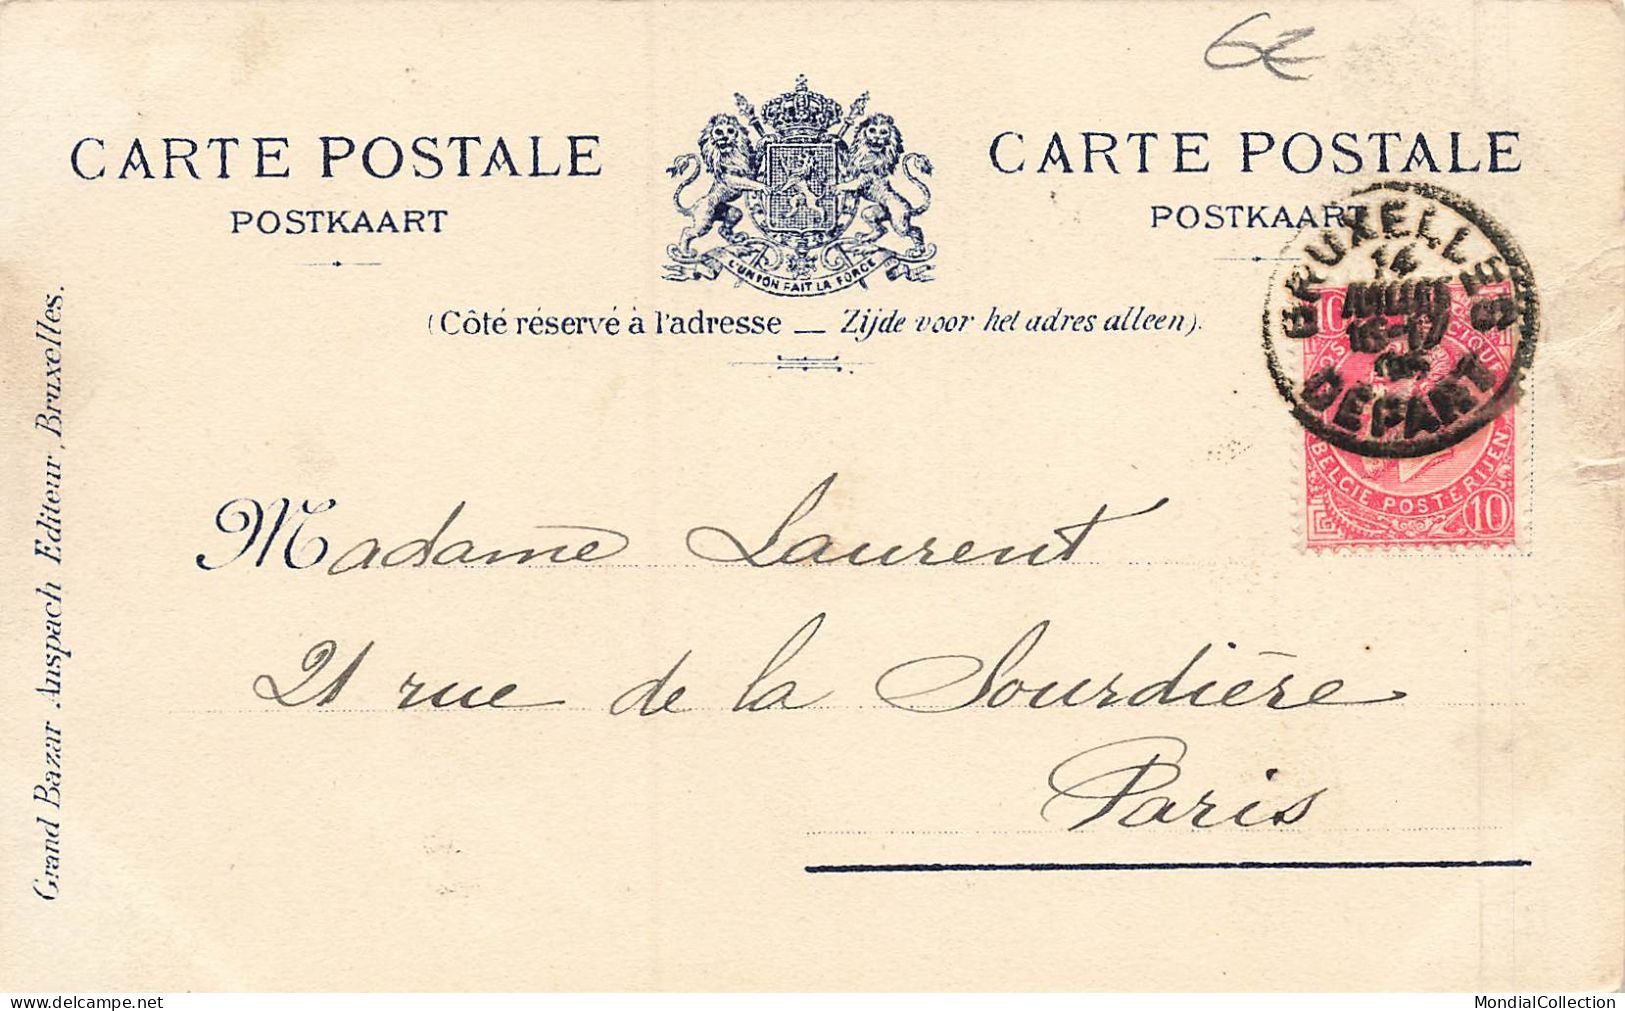 6€
CARTE POSTALE
POSTKAART
L'UNION FAIT LA FORCE
CARTE POSTALE
POSTKAART
(Côté réservé à l'adresse — Zijde voor het adres alleen).
BRUXELLES
14
16-17
DEPART
10
BELGIE POSTERIJEN
10
Madame Laurent
21 rue de la Sourdière
Paris
Grand Bazar Anspach Editeur, Bruxelles.
https://www.delcampe.net
MondialCollection